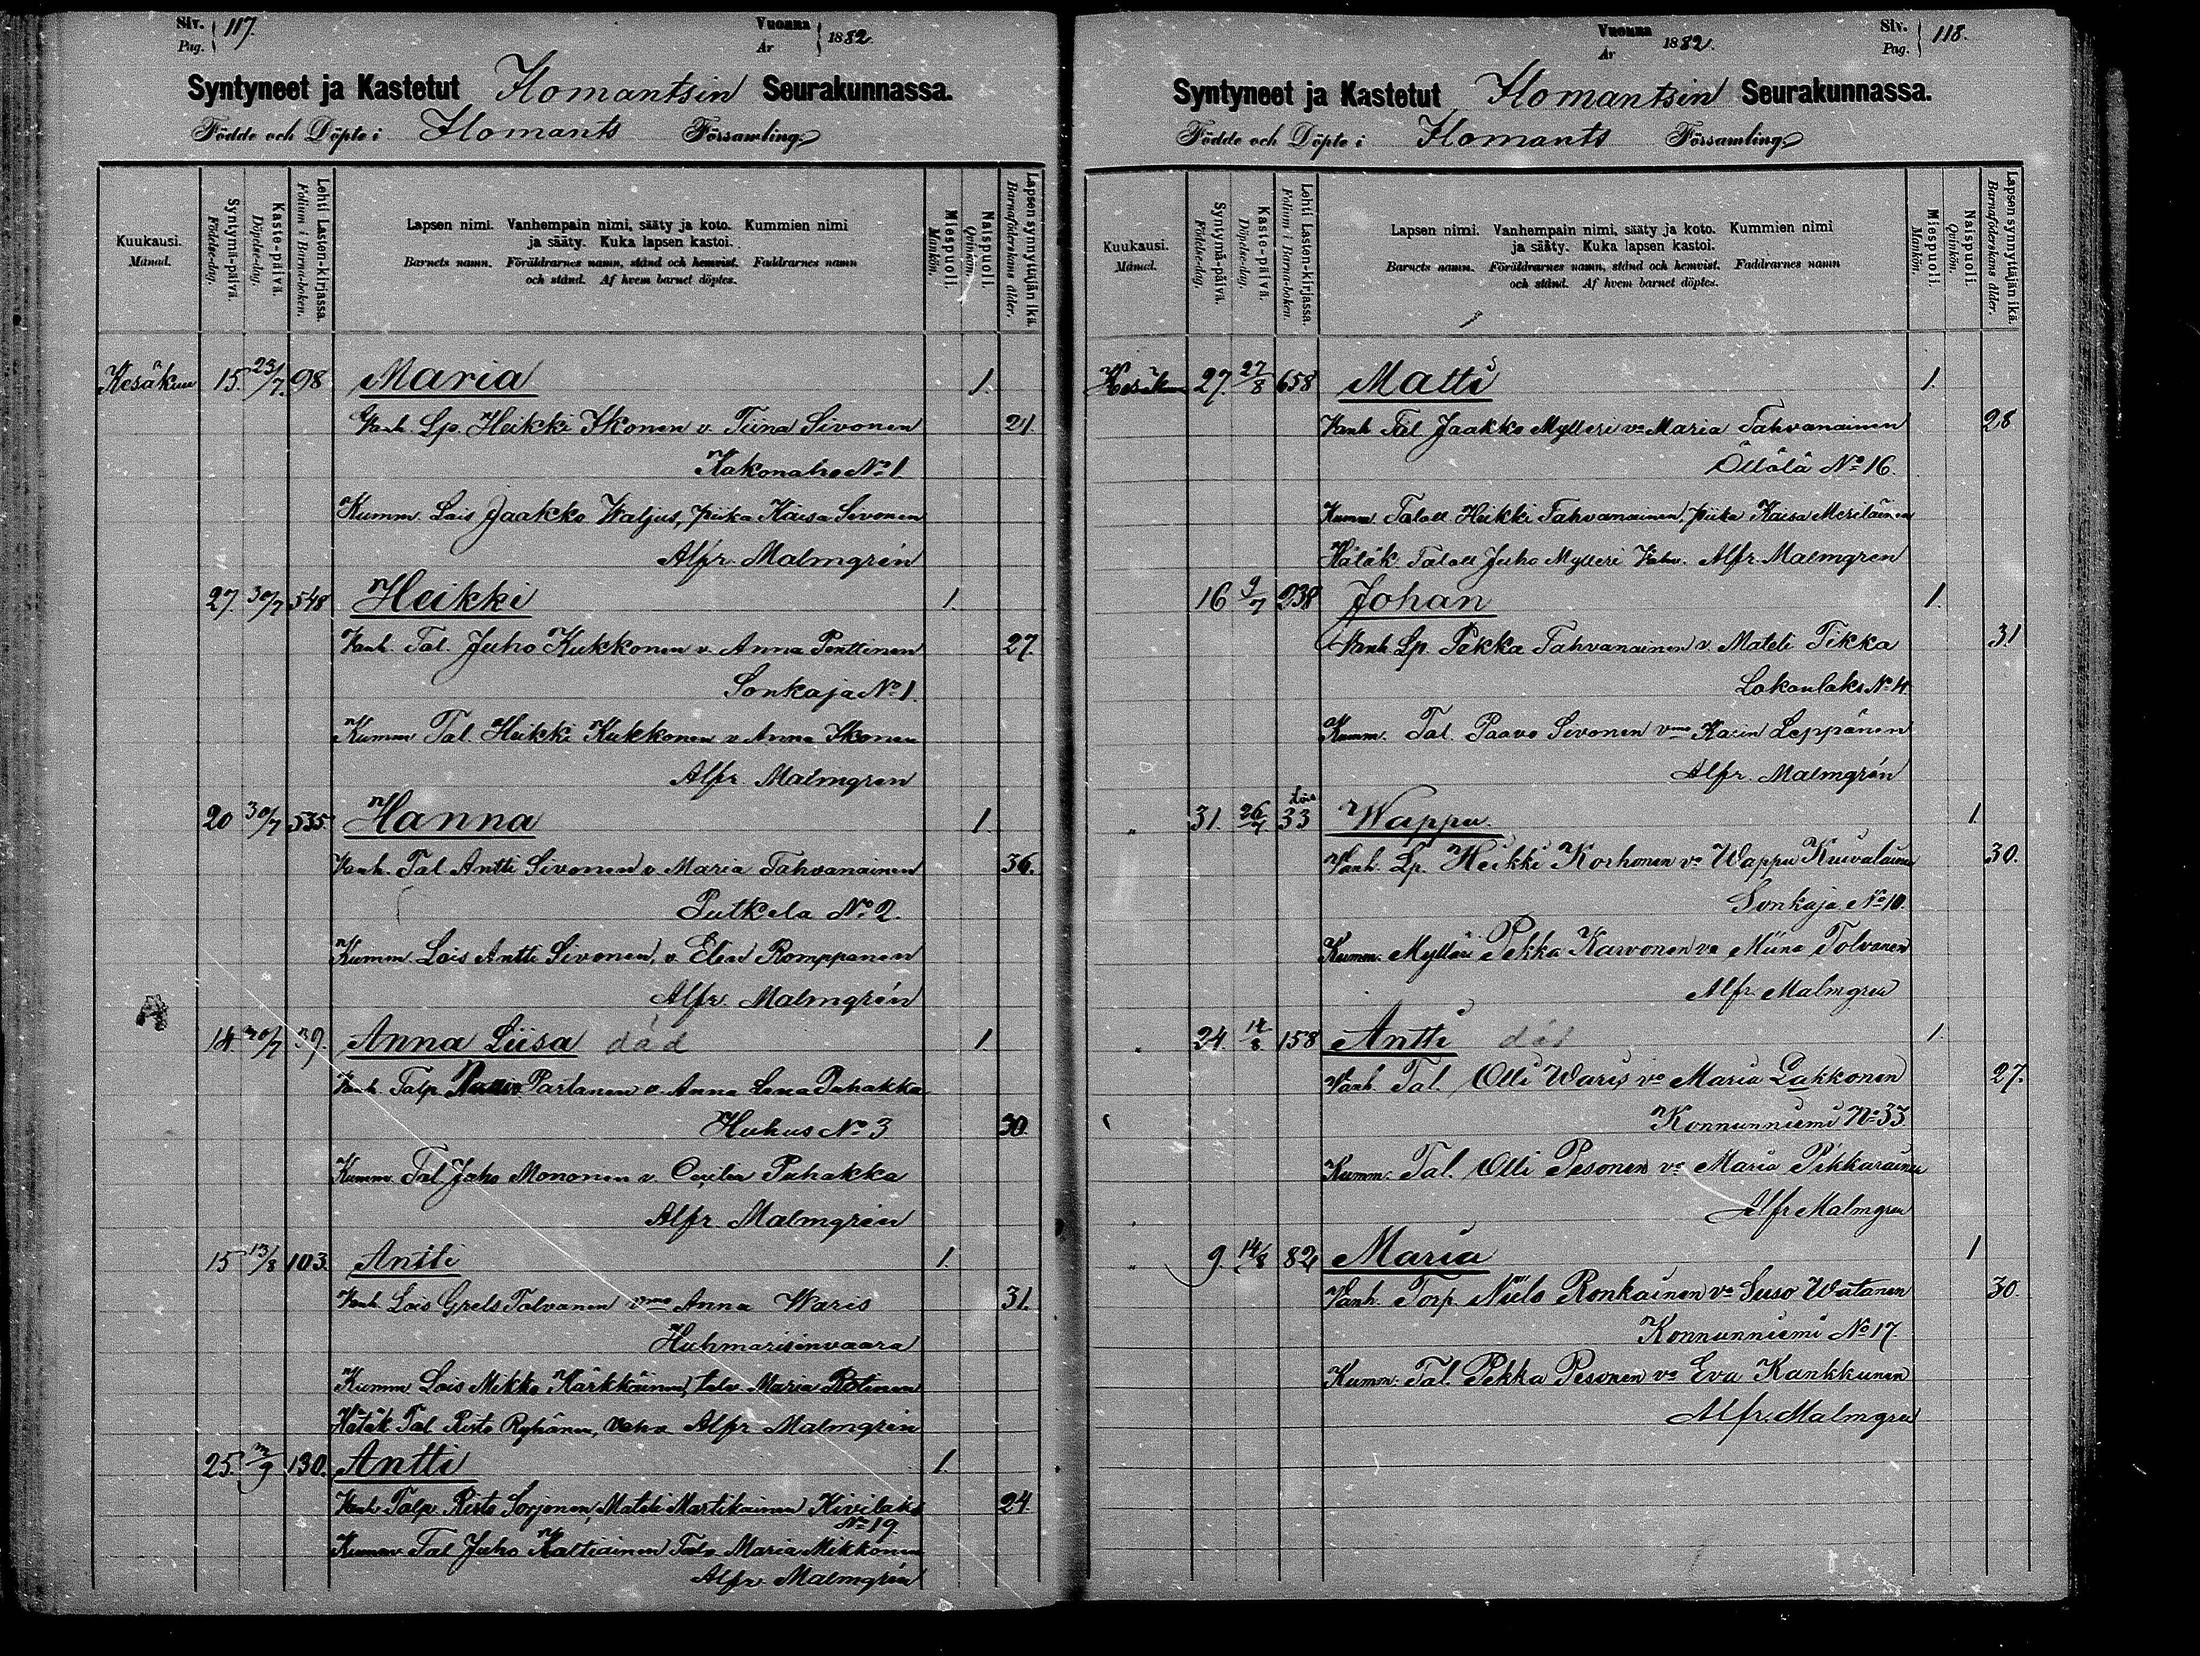 Siv. Pag. 117.
Vuonna År 1882.
Syntyneet ja Kastetut Ilomantsin Seurakunnassa.
Födde och Döpte i Ilomants Församling
Kuukausi. Månad.
Syntymä-päivä. Födelse-dag.
Kaste-päivä. Döpelse-dag.
Lehti Lasten-kirjassa. Folium i Barna-boken.
Lapsen nimi. Vanhempain nimi, sääty ja koto. Kummien nimi
ja sääty. Kuka lapsen kastoi.
Barnets namn. Föräldrarnes namn, stånd och hemvist. Faddrarnes namn
och stånd. Af hvem barnet döptes.
Miespuoli. Mankön.
Naispuoli. Qvinkön.
Lapsen synnyttäjän ikä. Barnaföderskans ålder.
Kesäkuu 15. 23/7. 98 Maria 1.
Vanh. Lp. Heikki Ikonen v. Tiina Sivonen 21.
Kakonaho No 1.
Kumm. Lois Jaakko Waljus, piika Kaisa Sivonen
Alfr. Malmgrén
27. 30/7 548 Heikki 1.
Vanh. Tal. Juho Kukkonen v. Anna Penttinen 27.
Sonkaja No 1.
Kumm Tal. Heikki Kukkonen v. Anna Ikonen
Alfr. Malmgren
20 30/7 535 Hanna 1.
Vanh. Tal. Antti Sivonen v. Maria Tahvanainen 36.
Putkela No 2.
Kumm. Lois Antti Sivonen, v. Elen Romppanen
Alfr. Malmgrén
14. 30/7 Anna Liisa död 1.
Vanh. Talp. Partanen v. Anna Lena Puhakka
Huhus No 3 30.
Kumm. Tal Juho Mononen v. Cecilia Puhakka
Alfr. Malmgrén
15 13/8 103. Antti 1.
Vanh. Lois Grels Tolvanen vmo Anna Waris 31.
Huhmarisinvaara
Kumm Lois Mikko Karkkainen, talv. Maria
Hätäk. Tal Risto Ryhänen, vahv. Alfr Malmgrén
25. 130. Antti 1.
Vanh. Talp. Risto Sorjonen, Mateli Martikainen Kivilaks 24.
No 19.
Kumm Tal Juho Kaltiainen Talv Maria Mikkonen
Alfr. Malmgrén
Vuonna År 1882.
Siv. Pag. 118.
Syntyneet ja Kastetut Ilomantsin Seurakunnassa.
Födde och Döpte i Ilomants Församling
Kuukausi. Månad.
Syntymä-päivä. Födelse-dag.
Kaste-päivä. Döpelse-dag.
Lehti Lasten-kirjassa. Folium i Barna-boken.
Lapsen nimi. Vanhempain nimi, sääty ja koto. Kummien nimi
ja sääty. Kuka lapsen kastoi.
Barnets namn. Föräldrarnes namn, stånd och hemvist. Faddrarnes namn
och stånd. Af hvem barnet döptes.
Miespuoli. Mankön.
Naispuoli. Qvinkön.
Lapsen synnyttäjän ikä. Barnaföderskans ålder.
Kesäkuu 27. 27/8 658 Matti 1.
Vanh Tal. Jaakko Mylleri vo Maria Tahvanainen 28
Öllölä No 16.
Kumm Talall Heikki Tahvanainen, piika Kaisa Meriläinen
Hätäk. Talall Juho Mylleri Vahv. Alfr. Malmgren
16 9/7 238 Johan 1.
Vanh. Lp. Pekka Tahvanainen v. Mateli Tikka 31
Lakonlaks No 4.
Kumm. Tal. Paavo Sivonen vmo Karin Leppänen
Alfr. Malmgrén
„ 31. 33 Wappu. 1.
Vanh. Lp. Heikki Korhonen vo Wappu Kuivalainen 30.
Sonkaja No 10.
Kumm. Mylläri Pekka Karvonen vo Miina Tolvanen
Alfr. Malmgren
„ 24. 14/8 158 Antti död 1.
Vanh. Tal. Olli Waris vo Maria Lakkonen 27.
Konnunniemi No 33.
Kumm. Tal. Olli Pesonen vo Maria Pikkarainen
Alfr Malmgren
„ 9. 14/8 82 Maria 1
Vanh. Torp. Niilo Ronkainen vo Suso Watanen 30.
Konnunniemi No 17.
Kumm. Tal. Pekka Pesonen vo Eva Kankkunen
Alfr. Malmgren